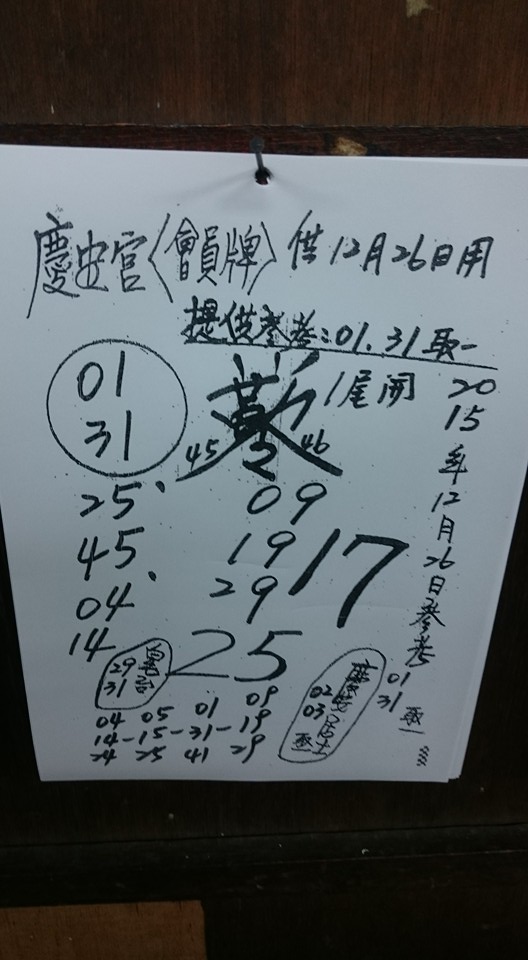 慶安宮〈會員牌〉供12月26日用
提供參考:01.31取一
01
31
1尾開
45 2 46
25、
45
04、
14
09
19
29
17
25
2015年12月26日參考
01
31
取一
29
31
02
03
04 05 01 09
14-15-31-19
24 25 41 29